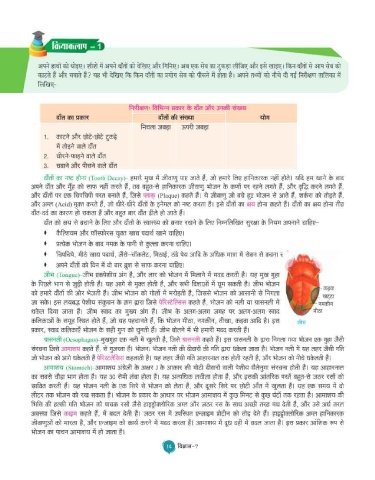 क्रियाकलाप – 1
अपने हाथों को धोइए। शीशे में अपने दाँतों को देखिए और गिनिए। अब एक सेब का टुकड़ा लीजिए और इसे खाइए। किन दाँतों से आप सेब को
काटते हैं और चबाते हैं? यह भी देखिए कि किन दाँतों का प्रयोग सेब को पीसने में होता है। अपने तथ्यों को नीचे दी गई निरीक्षण तालिका में
लिखिए-
निरीक्षण: विभिन्न प्रकार के दाँत और उनकी संख्या
दाँत का प्रकार दाँतों की संख्या योग
निचला जबड़ा ऊपरी जबड़ा
1. काटने और छोटे-छोटे टुकड़े
में तोड़ने वाले दाँत
2. चीरने-फाड़ने वाले दाँत
3. चबाने और पीसने वाले दाँत
दाँतों का नष्ट होना (Tooth Decay)- हमारे मुख में जीवाणु पाए जाते हैं, जो हमारे लिए हानिकारक नहीं होते। यदि हम खाने के बाद
अपने दाँत और मुँह को साफ नहीं करते हैं, तब बहुत-से हानिकारक जीवाणु भोजन के कणों पर रहने लगते हैं, और वृद्धि करने लगते हैं,
और दाँतों पर एक चिपचिपी परत बनाते हैं, जिसे प्लाक (Plaque) कहते हैं। ये जीवाणु जो बचे हुए भोजन से आते हैं, शर्करा को तोड़ते हैं,
और अम्ल (Acid) मुक्त करते हैं, जो धीरे-धीरे दाँतों के इनेमल को नष्ट करता है। इसे दाँतों का क्षय होना कहते हैं। दाँतों का क्षय होना तीव्र
दाँत-दर्द का कारण हो सकता है और बहुत बार दाँत ढीले हो जाते हैं।
दाँत को क्षय से बचाने के लिए और दाँतों के स्वास्थ्य को बनाए रखने के लिए निम्नलिखित सुरक्षा के नियम अपनाने चाहिए–
♦ कैल्शियम और फॉस्फोरस युक्त खाद्य पदार्थ खाने चाहिए।
♦ प्रत्येक भोजन के बाद नमक के पानी से कुल्ला करना चाहिए।
♦ चिपचिपे, मीठे खाद्य पदार्थ, जैसे-चॉकलेट, मिठाई, ठंडे पेय आदि के अधिक मात्रा में सेवन से बचना
♦ अपने दाँतों को दिन में दो बार ब्रुश से साफ करना चाहिए।
जीभ (Tongue)- जीभ इकपेशीय अंग है, और लार को भोजन में मिलाने में मदद करती है। यह मुख गुहा
के पिछले भाग से जुड़ी होती है। यह आगे से मुक्त होती है, और सभी दिशाओं में घूम सकती है। जीभ भोजन
को हमारे दाँतों की ओर भेजती है। जीभ भोजन को गोली में मरोड़ती है, जिससे भोजन को आसानी से निगला
जा सके। इस लयबद्ध पेशीय संकुचन के क्रम द्वारा जिसे पेरिस्टैल्सिस कहते हैं, भोजन को नली या ग्रासनली में
धकेल दिया जाता है। जीभ स्वाद का मुख्य अंग है। जीभ के अलग-अलग जगह पर अलग-अलग स्वाद
कलिकाओं के समूह स्थित होते हैं, जो यह पहचानते हैं, कि भोजन मीठा, नमकीन, तीखा, कड़वा आदि है। इस
प्रकार, स्वाद कलिकाएँ भोजन के सही गुण को चुनती हैं। जीभ बोलने में भी हमारी मदद करती है।
कड़वा
खट्टा
नमकीन
मीठा
जीभ
ग्रासनली (Oesophagus)- मुखगुहा एक नली में खुलती है, जिसे ग्रासनली कहते हैं। इस ग्रासनली के द्वारा निगला गया भोजन एक गुहा जैसी
संरचना जिसे आमाशय कहते हैं, में गुजरता है। भोजन: भोजन नली की दीवारों की गति द्वारा धकेला जाता है। भोजन नली में यह लहर जैसी गति
जो भोजन को आगे धकेलती है पेरिस्टैल्टिक कहलाती है। यह लहर जैसी गति आहारनाल तक होती रहती है, और भोजन को नीचे धकेलती है।
आमाशय (Stomach)- आमाशय अंग्रेजी के अक्षर J के आकार की मोटी दीवारों वाली पेशीय थैलीनुमा संरचना होती है। यह आहारनाल
का सबसे चौड़ा भाग होता है। यह 30 सेमी लंबा होता है। यह अत्यधिक लचीला होता है, और इसकी आंतरिक परतें बहुत-से जठर रसों को
स्रावित करती हैं। यह भोजन नली के एक सिरे से भोजन को लेता है, और दूसरे सिरे पर छोटी आँत में खुलता है। यह एक समय में दो
लीटर तक भोजन को रख सकता है। भोजन के प्रकार के आधार पर भोजन आमाशय में कुछ मिनट से कुछ घंटों तक रहता है। आमाशय की
भित्ति की हल्की गति भोजन को पाचक रसों जैसे हाइड्रोक्लोरिक अम्ल और जठर रस के साथ अच्छी तरह मथ देती है, और उसे अर्द्ध तरल
अवस्था जिसे काइम कहते हैं, में बदल देती है। जठर रस में उपस्थित एन्जाइम प्रोटीन को तोड़ देते हैं। हाइड्रोक्लोरिक अम्ल हानिकारक
जीवाणुओं को मारता है, और एन्जाइम को कार्य करने में मदद करता है। आमाशय में दूध दही में बदल जाता है। इस प्रकार आंशिक रूप से
भोजन का पाचन आमाशय में हो जाता है।
14 विज्ञान–7